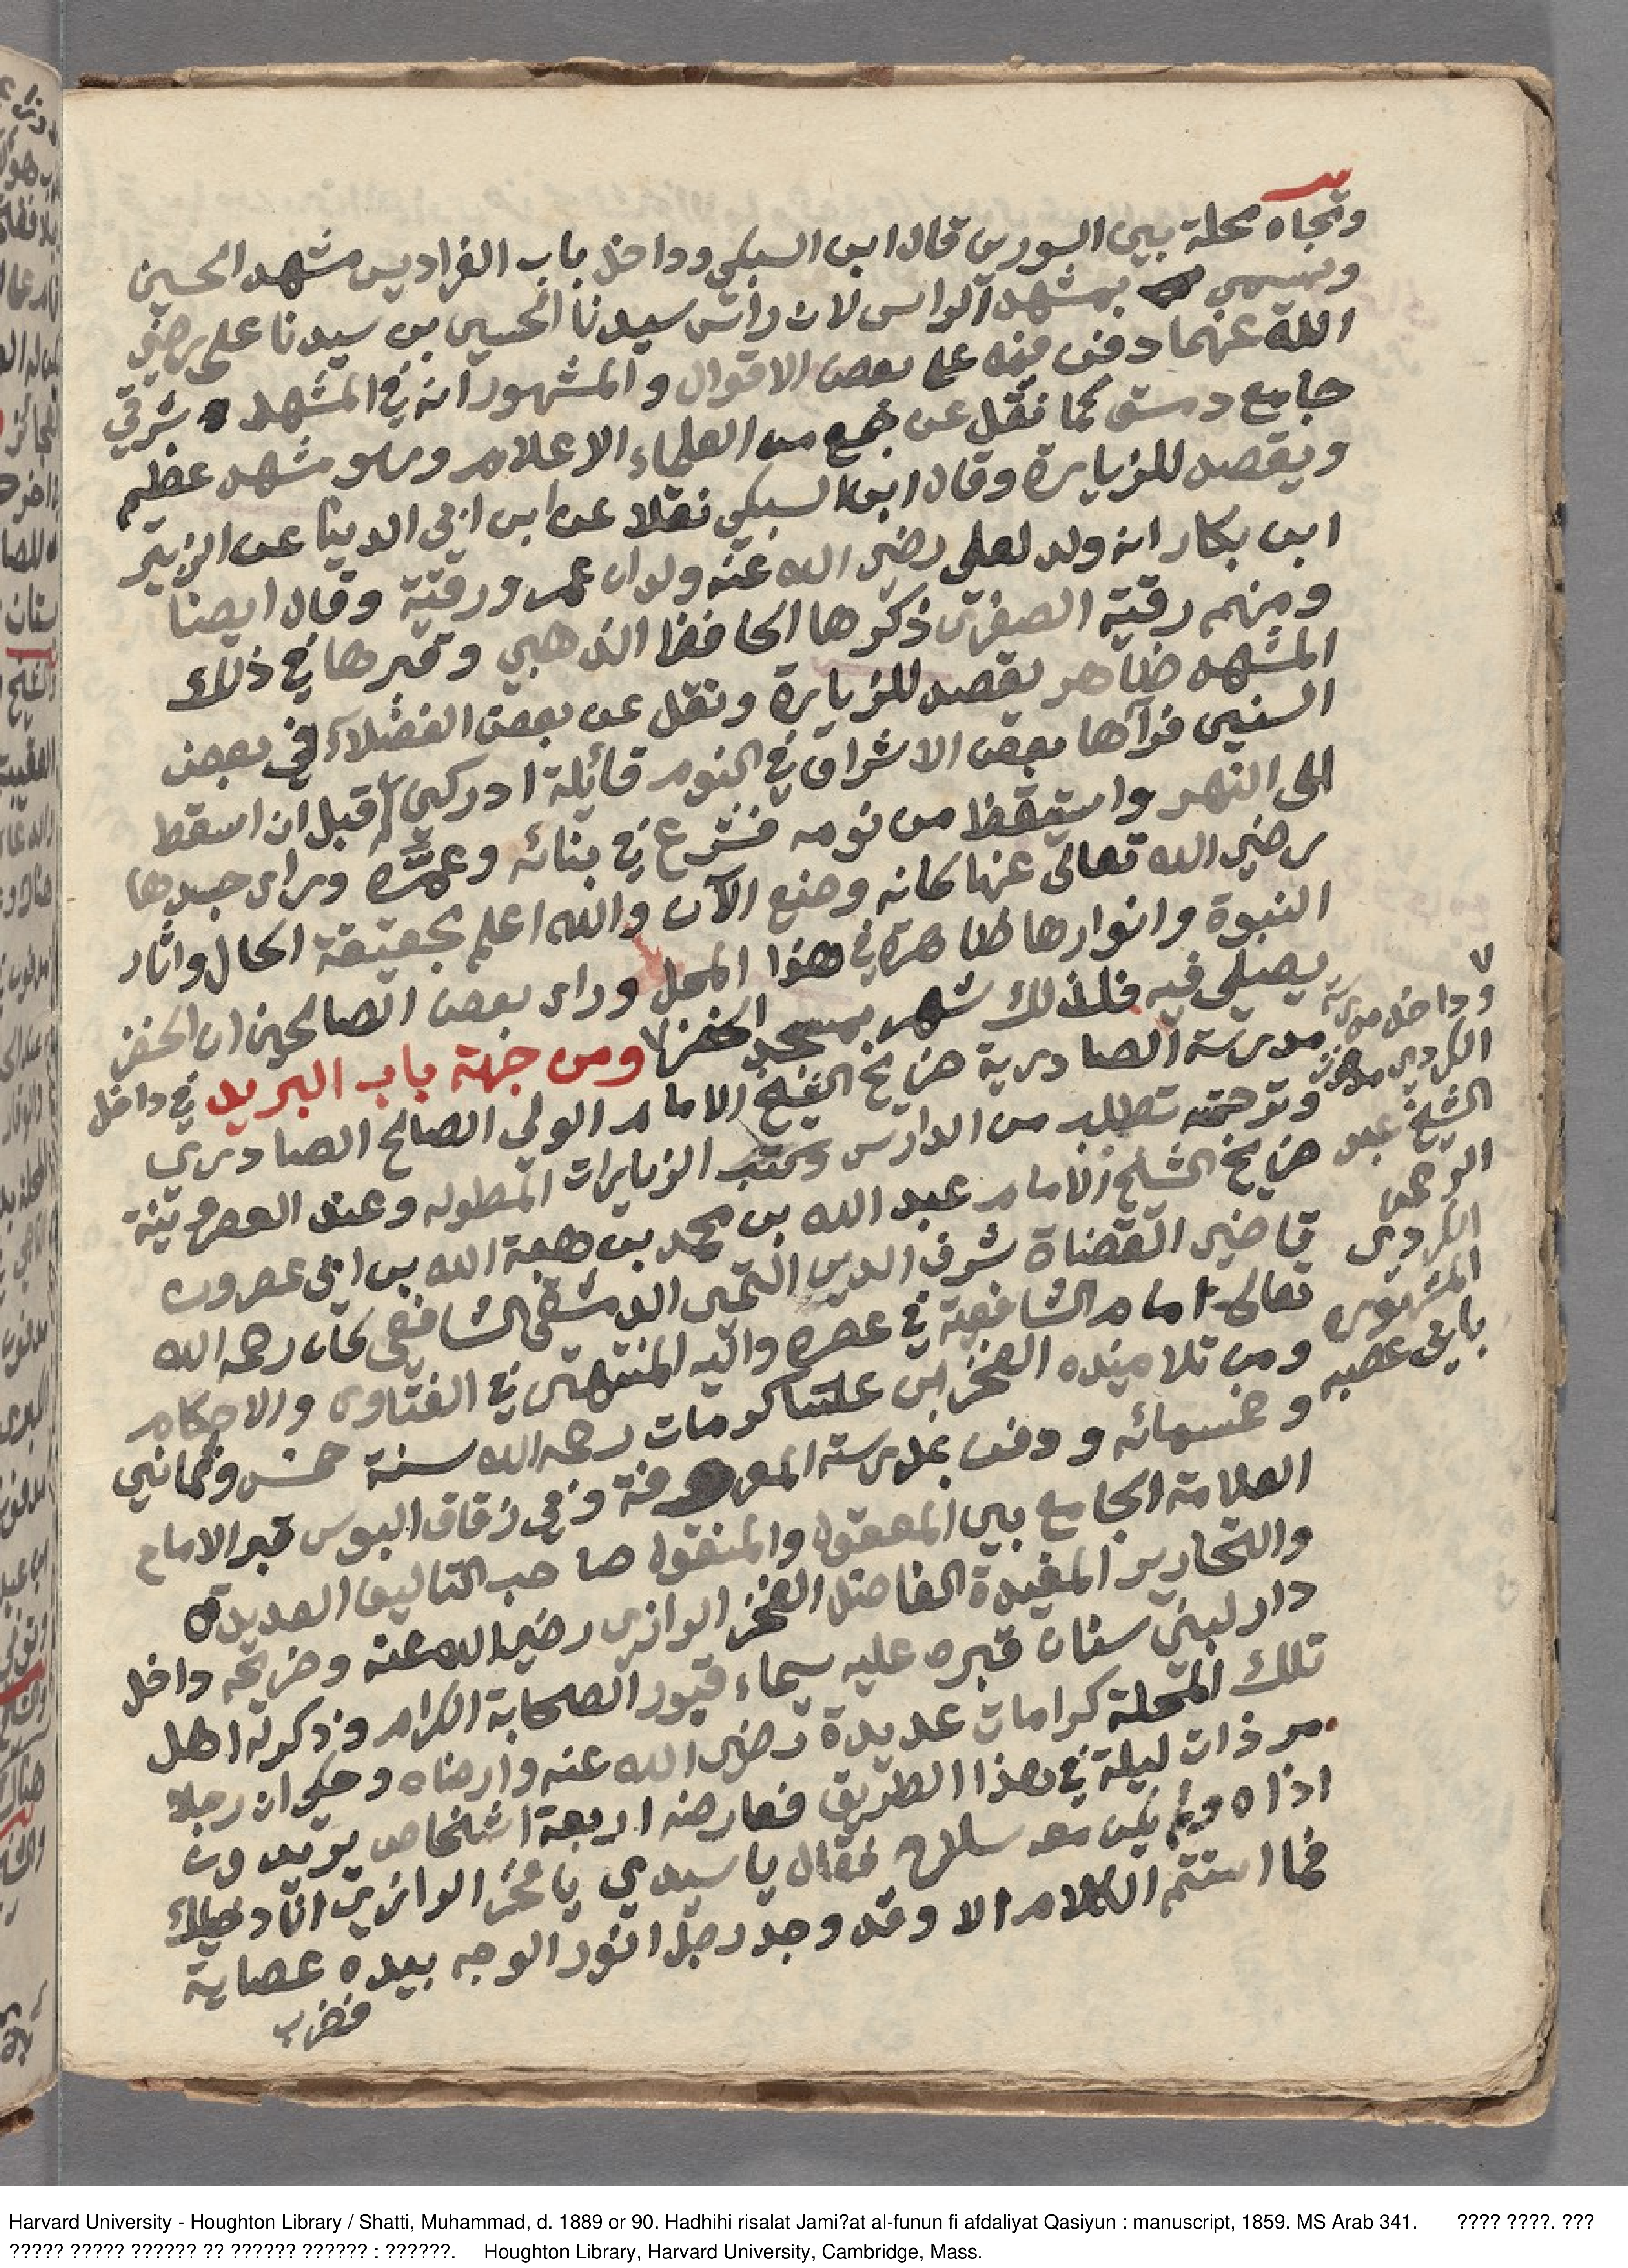 وتجاه محلة بين السورين قال ابن السبكي وداخل باب الفراديس مشهد الحسين
ويسمى بمشهد الراس لان رأس سيدنا الحسين بن سيدنا على رضي
الله عنهما دفن فيه على بعض الاقوال والمشهور انه في المشهد شرقي
جامع دمشق كما نقل عن جمع من العلماء الاعلام وهو مشهد عظيم
ويقصد للزيارة وقال ابن السبكي نقلا عن ابن ابي الدنيا عن الزبير
ابن بكار انه ولد لعلى رضي الله عنه ولدان عمر ورقية وقال ايضا
ومنهم رقية الصغرى ذكرها الحافظ الذهبي وقبرها في ذلك
المشهد ظاهر يقصد للزيارة ونقل عن بعض الفضلاء في بعض
السنين فرآها بعض الاشراف في النوم قائلة ادركني قبل ان اسقط
الى النهر واستيقظ من نومه فشرع في بنائه وعمره وراى جسدها
رضي الله تعالى عنها كانه وضع الآن والله اعلم بحقيقة الحال واثار
النبوة وانوارها ظاهرة في هذا المحل وراى بعض الصالحين ان الخضر
يصلي فيه فلذلك شهر بمسجد الخضر ومن جهة باب البريد في داخل
مدرسة الصادرية ضريح الشيخ الامام الولي الصالح الصادري
وترجمته تطلب من الدارس وكتب الزيارات المطوله وعند العصرونية
ضريح الشيخ الامام عبد الله بن محمد بن هبة الله بن ابي عصرون
قاضي القضاة شرف الدين التميمى الدمشقى الشافعى كان رحمه الله
تعالى امام الشافعية في عصره واليه المنتهى في الفتاوى والاحكام
ومن تلاميذه الفخر ابن عساكر ومات رحمه الله سنة خمس وثمانين
وخمسمائه ودفن بمدرسته المعروفة وفي زقاق البوس قبر الامام
العلامة الجامع بين المعقول والمنقول صاحب التاليف العديدة
والتحارير المفيدة الفاضل الفخر الرازي رضي الله عنه وضريحه داخل
دار لبني سنان قبره عليه سيماء قبور الصحابة الكرام وذكر له اهل
تلك المحلة كرامات عديدة رضي الله عنه وارضاه وحكي ان رجلا
مر ذات ليلة في هذا الطريق فعارضه اربعة اشخاص يريدون
اذاه ولم يكن معه سلاح فقال يا سيدي يا فخر الرازي انا دخيلك
فما استتم الكلام الا وقد وجد رجل انور الوجه بيده عصاية
فضرب
وداخل
الكردي
الشيخ عبد
الرحمن
الكردي
المشهوره
بابي عصبه
Harvard University - Houghton Library / Shatti, Muhammad, d. 1889 or 90. Hadhihi risalat Jami?at al-funun fi afdaliyat Qasiyun : manuscript, 1859. MS Arab 341. ???? ????. ???
????? ????? ?????? ?? ?????? ?????? : ??????. Houghton Library, Harvard University, Cambridge, Mass.